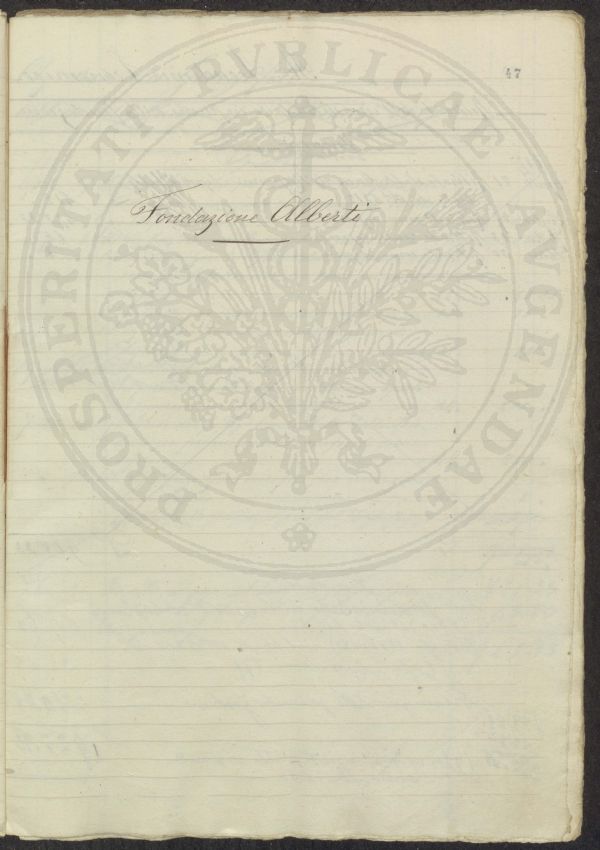 47
PROSPERITATI PVBLICAE AVGENDAE
Fondazione Alberti